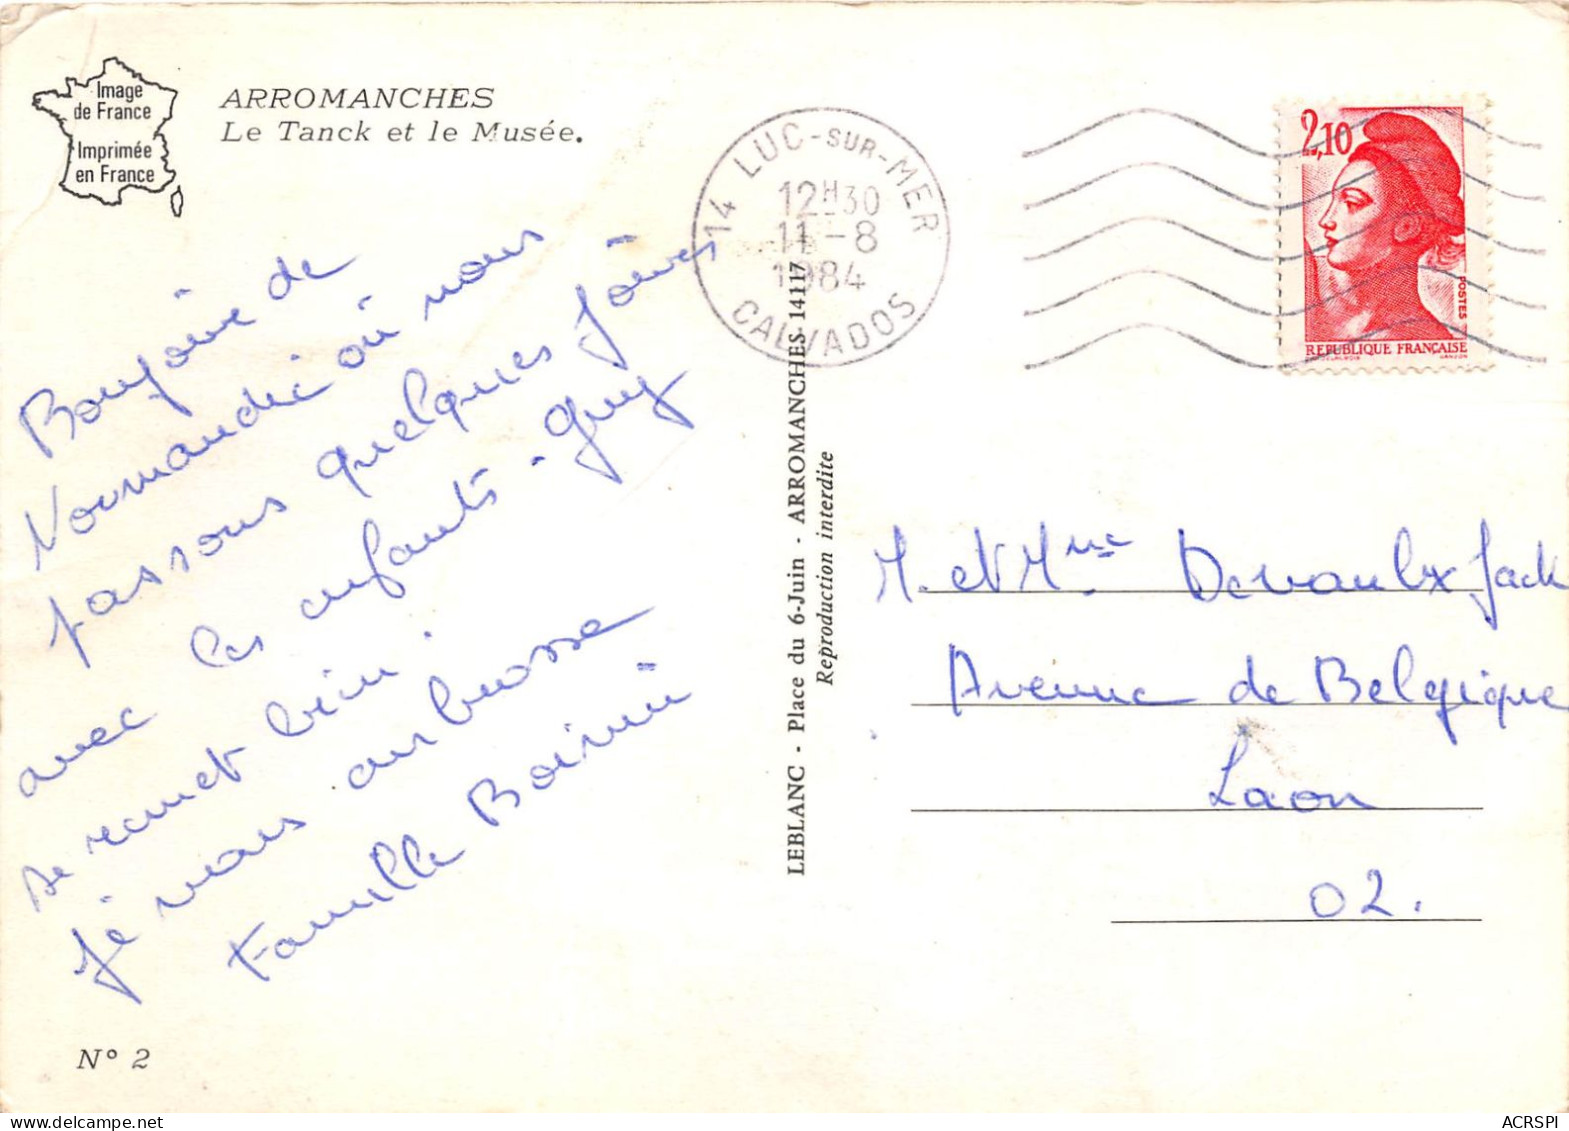 Image
de France
Imprimée
en France
ARROMANCHES
Le Tanck et le Musée.
14 LUC-SUR-MER
12H30
11-8
1984
CALVADOS
2,10
POSTES
REPUBLIQUE FRANÇAISE
Bonjour de
Normandie où nous
passons quelques jours
avec les enfants - Guy
se remet bien.
Je vous embrasse
Famille
LEBLANC - Place du 6-Juin - ARROMANCHES-14117
Reproduction interdite
M. et Mme Devaulx Jack
Avenue de Belgique
Laon
02.
N° 2
ACRSPI